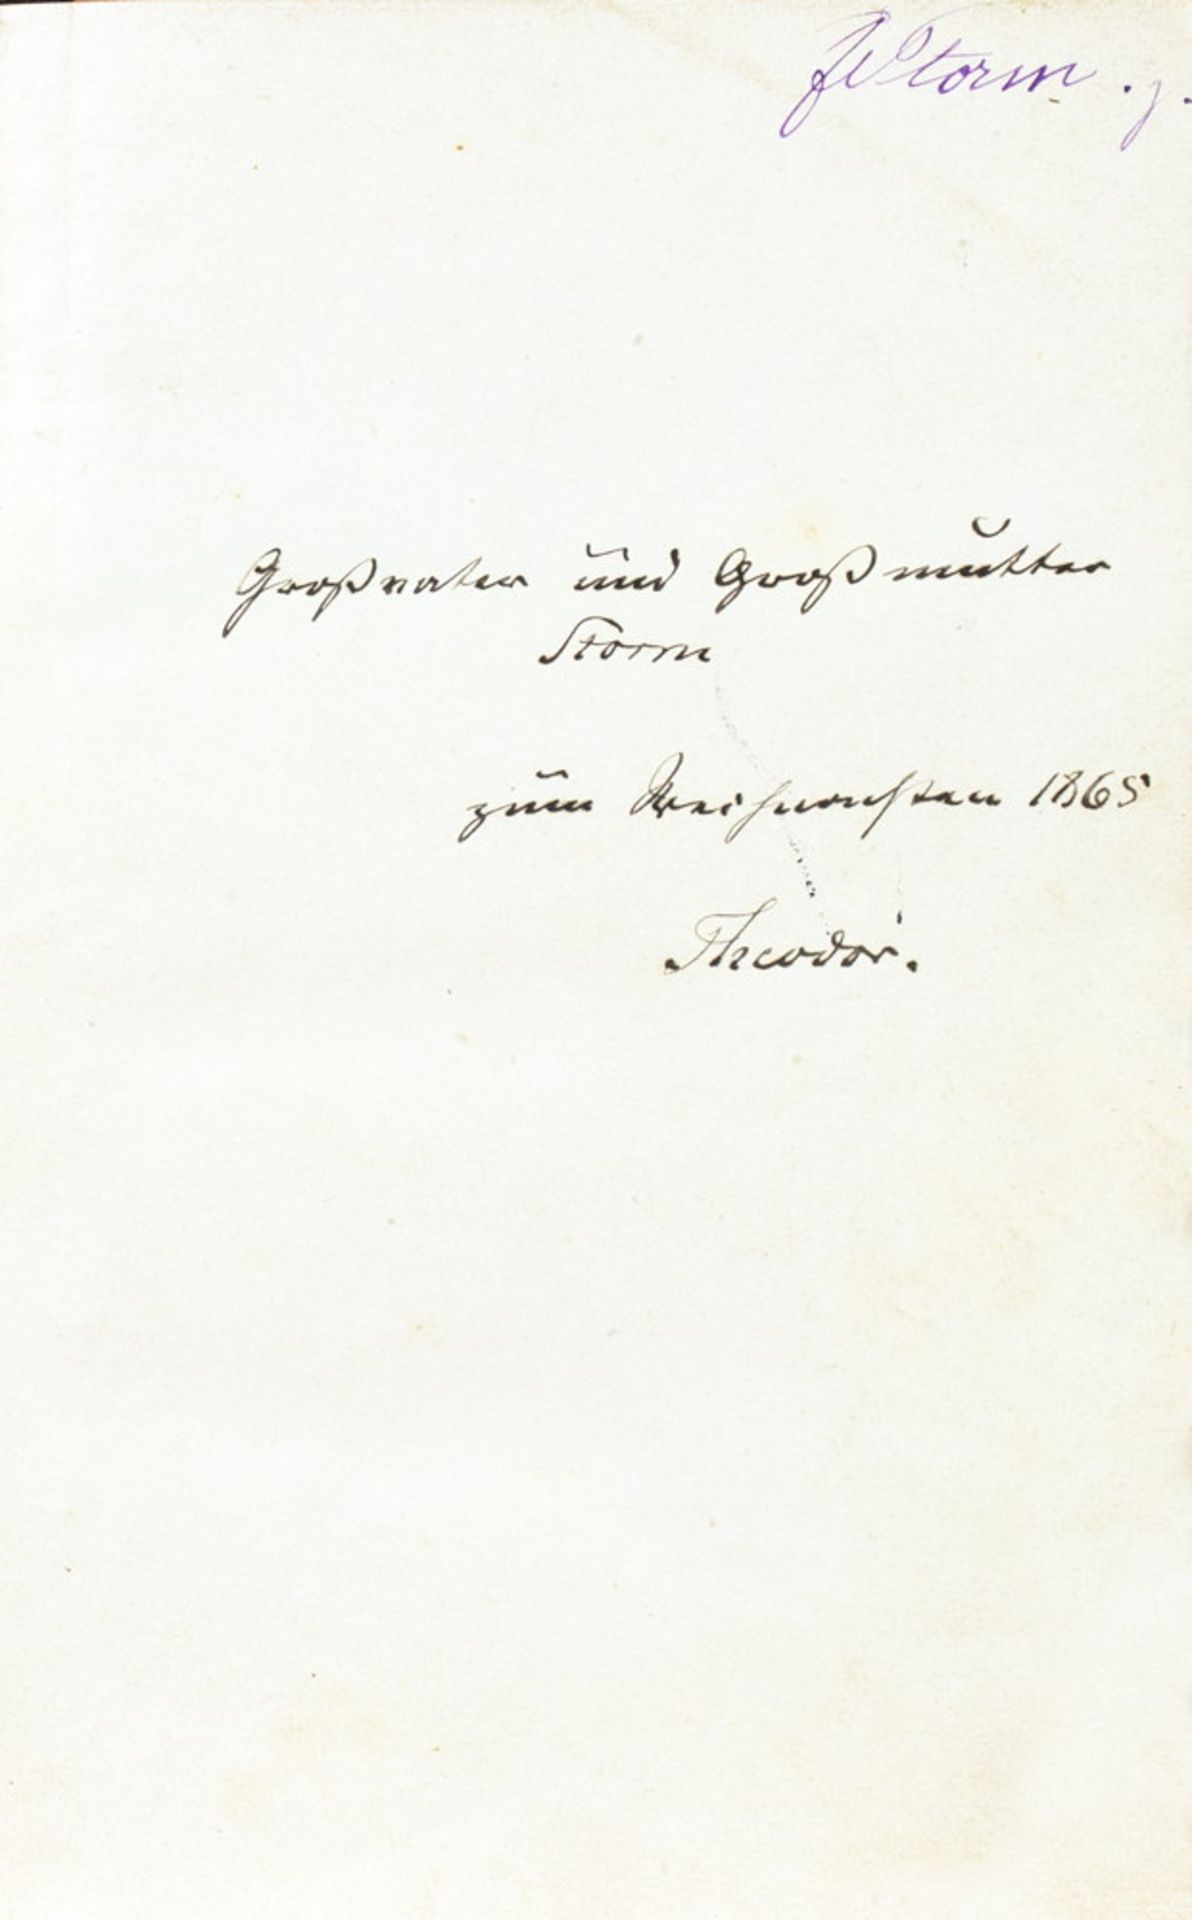 Storm
Großvater und Großmutter
Storm
zum Weihnachten 1865
Theodor.